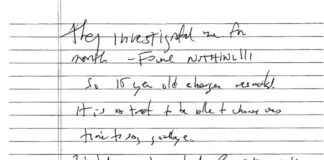 They investigated me for
month – Found NOTHING!!!
So 15 year old charges resulted.
It is a treat to be able to choose ones
time to say goodbye.